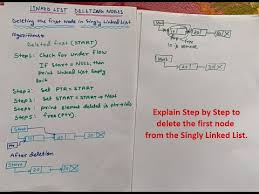 LINKED LIST DELETING NODES
Deleting the first Node in Singly Linked List
Algorithm:
Deleted first (START)
Step 1: Check for under flow
If Start = NULL, then
Print Linked List Empty
Exit
Step 2: Set PTR = START
Step 3: Set START = START → Next
Step 4: Print element deleted is ptr → info
Step 5: free (Ptr)
Start
10
20
30 X
After deletion
Start
20
30 X
Start
20
30 X
ptr = free
10 is remove
Start
20
30 X
Explain Step by Step to
delete the first node
from the Singly Linked List.